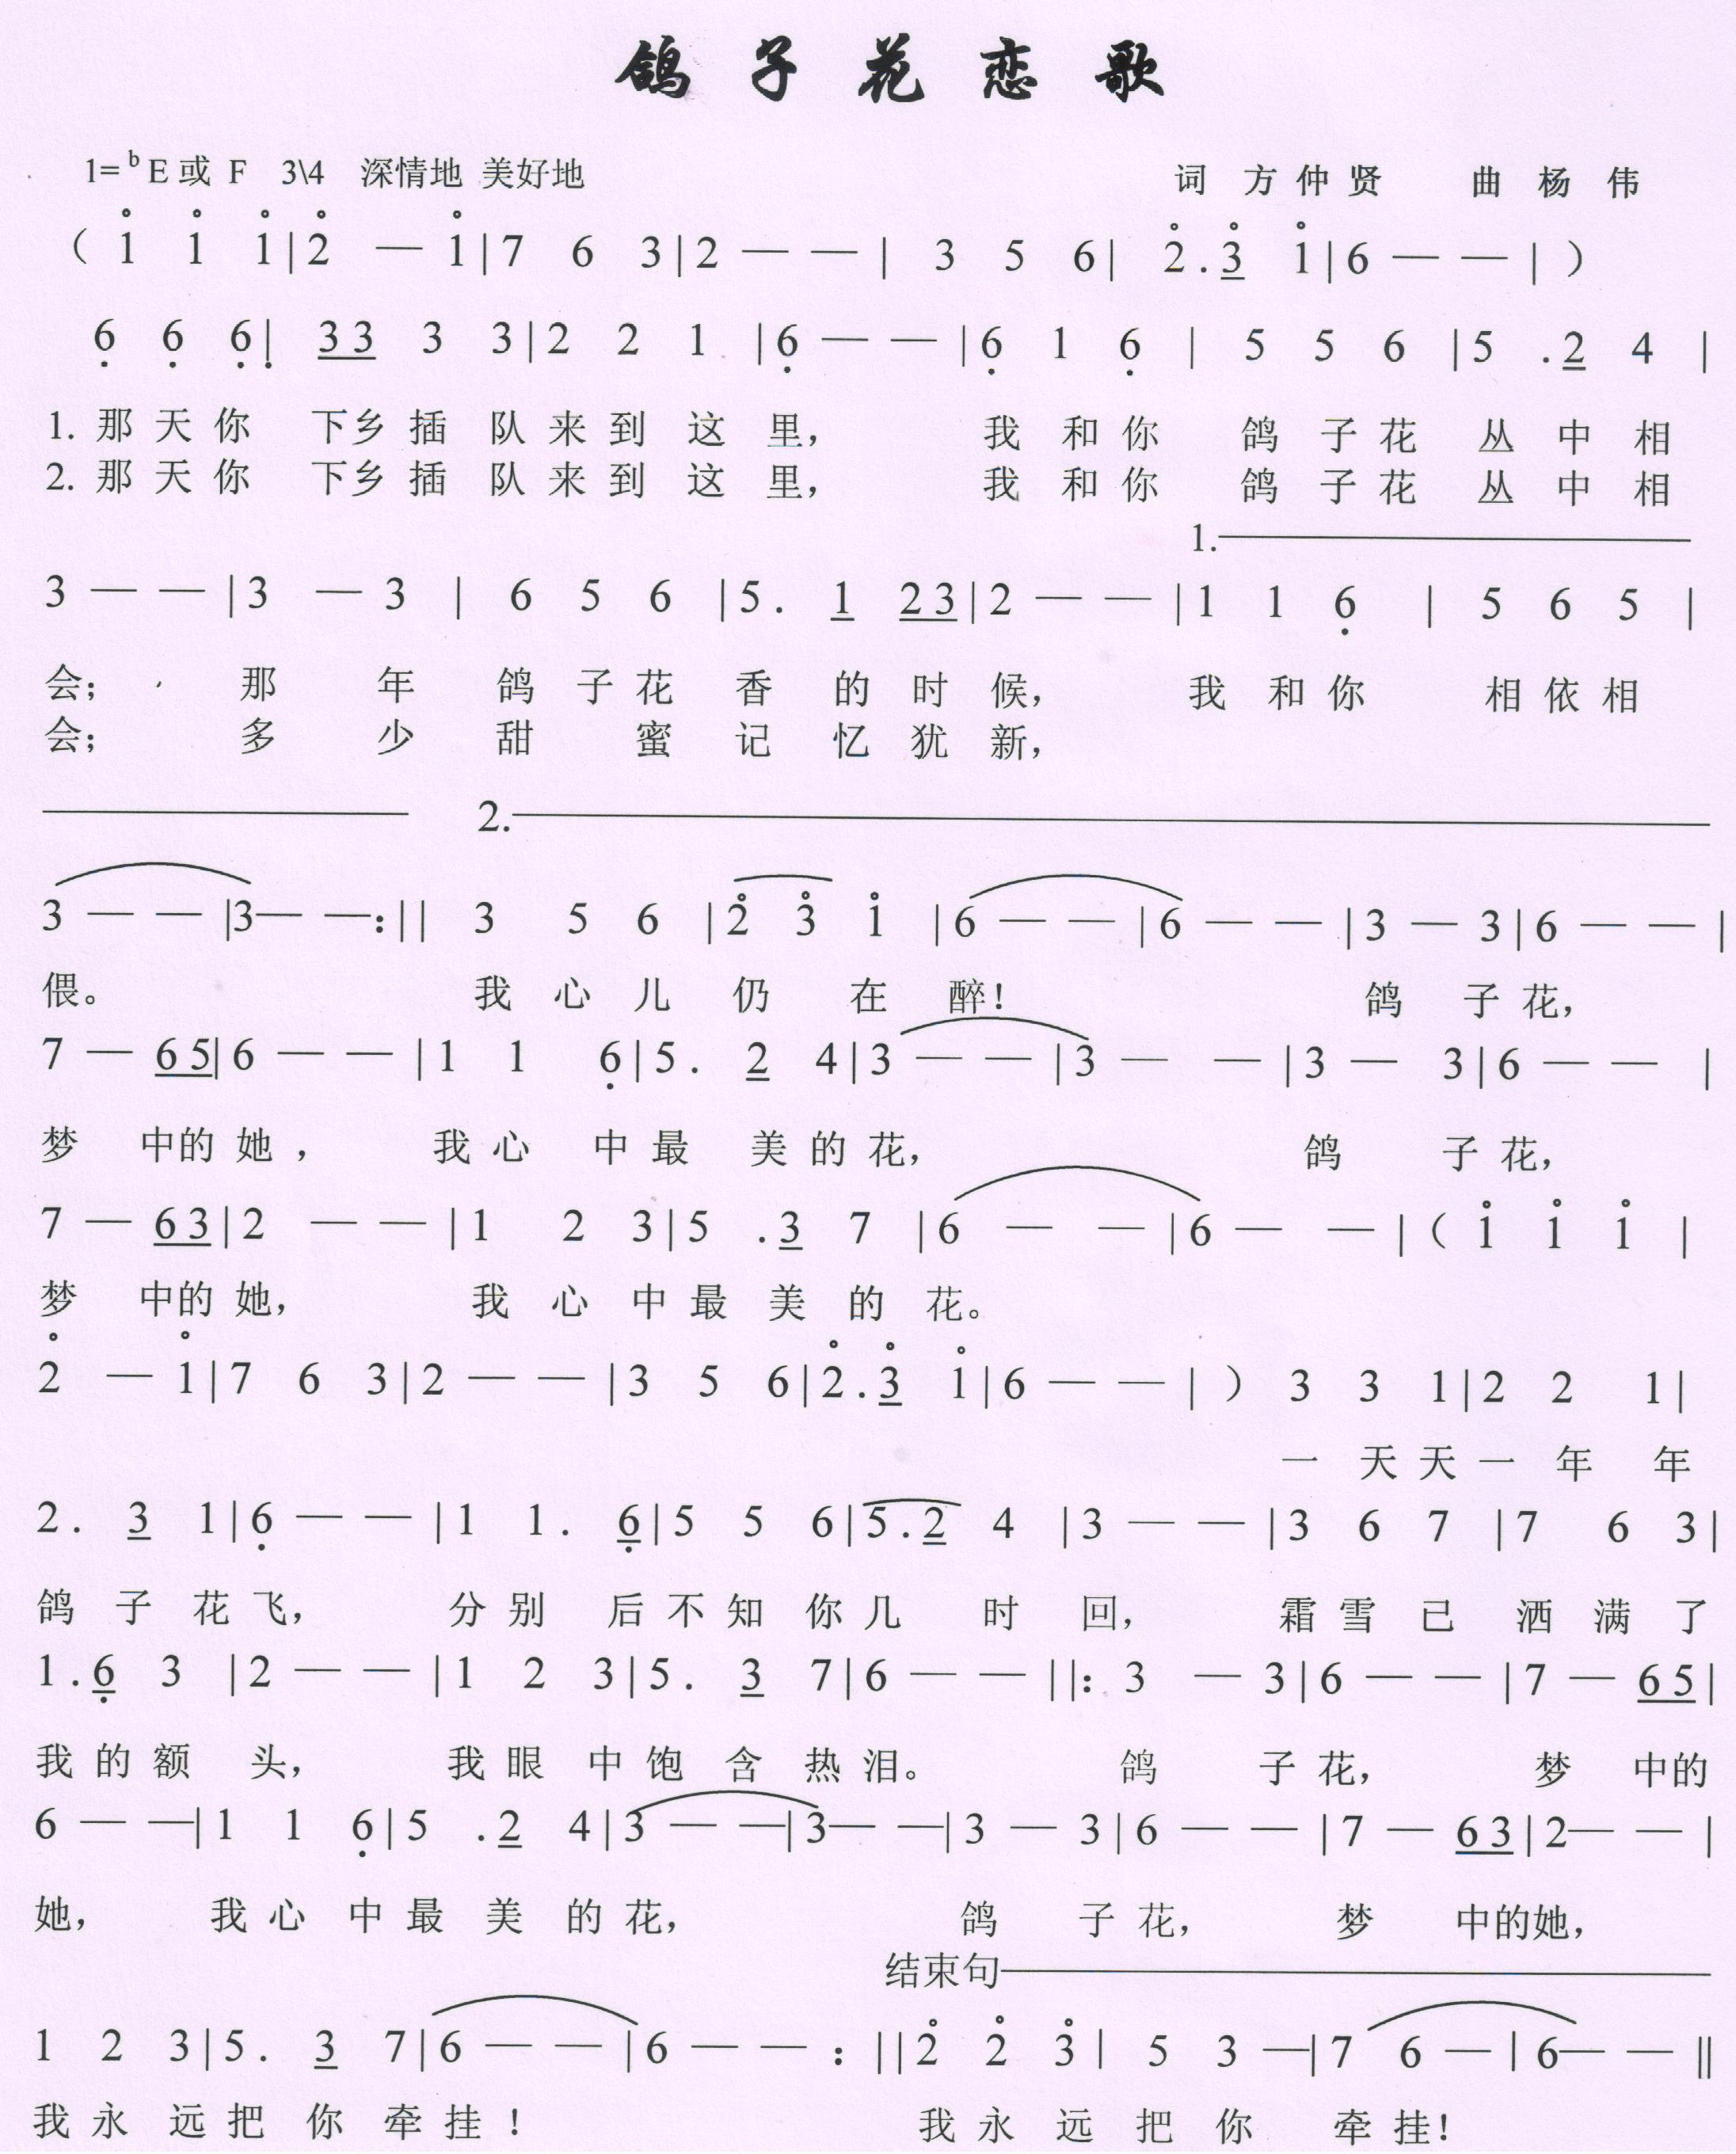 鸽子花恋歌
1=ᵇE或 F 3\4 深情地 美好地 词 方仲贤 曲 杨伟
( i i i | 2̇ — i | 7 6 3 | 2 — — | 3 5 6 | 2̇ . 3̇ i | 6 — — | )
6̣ 6̣ 6̣ | 3 3 3 3 | 2 2 1 | 6̣ — — | 6̣ 1 6̣ | 5 5 6 | 5 . 2 4 |
1. 那天你 下乡插 队来到 这里, 我和你 鸽子花 丛中相
2. 那天你 下乡插 队来到 这里, 我和你 鸽子花 丛中相
1.
3 — — | 3 — 3 | 6 5 6 | 5 . 1 2 3 | 2 — — | 1 1 6̣ | 5 6 5 |
会; 那年 鸽子花 香的时候, 我和你 相依相
会; 多少 甜蜜 记忆犹新,
2.
3 — — | 3 — — :|| 3 5 6 | 2̇ 3̇ i | 6 — — | 6 — — | 3 — 3 | 6 — — |
偎。 我心儿 仍在醉! 鸽子花,
7 — 6 5 | 6 — — | 1 1 6̣ | 5 . 2 4 | 3 — — | 3 — — | 3 — 3 | 6 — — |
梦 中的她, 我心 中最 美的花, 鸽 子花,
7 — 6 3 | 2 — — | 1 2 3 | 5 . 3 7 | 6 — — | 6 — — | ( i i i |
梦 中的她, 我心中最美的花。
2̇ — i | 7 6 3 | 2 — — | 3 5 6 | 2̇ . 3̇ i | 6 — — | ) 3 3 1 | 2 2 1 |
一天天一年年
2 . 3 1 | 6̣ — — | 1 1 . 6̣ | 5 5 6 | 5 . 2 4 | 3 — — | 3 6 7 | 7 6 3 |
鸽子花飞, 分别 后不知 你几 时 回, 霜雪已 洒满了
1 . 6̣ 3 | 2 — — | 1 2 3 | 5 . 3 7 | 6 — — ||: 3 — 3 | 6 — — | 7 — 6 5 |
我的额 头, 我眼中饱含热泪。 鸽 子花, 梦 中的
6 — — | 1 1 6̣ | 5 . 2 4 | 3 — — | 3 — — | 3 — 3 | 6 — — | 7 — 6 3 | 2 — — |
她, 我心 中最 美 的花, 鸽 子花, 梦 中的她,
结束句
1 2 3 | 5 . 3 7 | 6 — — | 6 — — :|| 2̇ 2̇ 3̇ | 5 3 — | 7 6 — | 6 — — ‖
我永远把你牵挂! 我永远把你 牵挂!